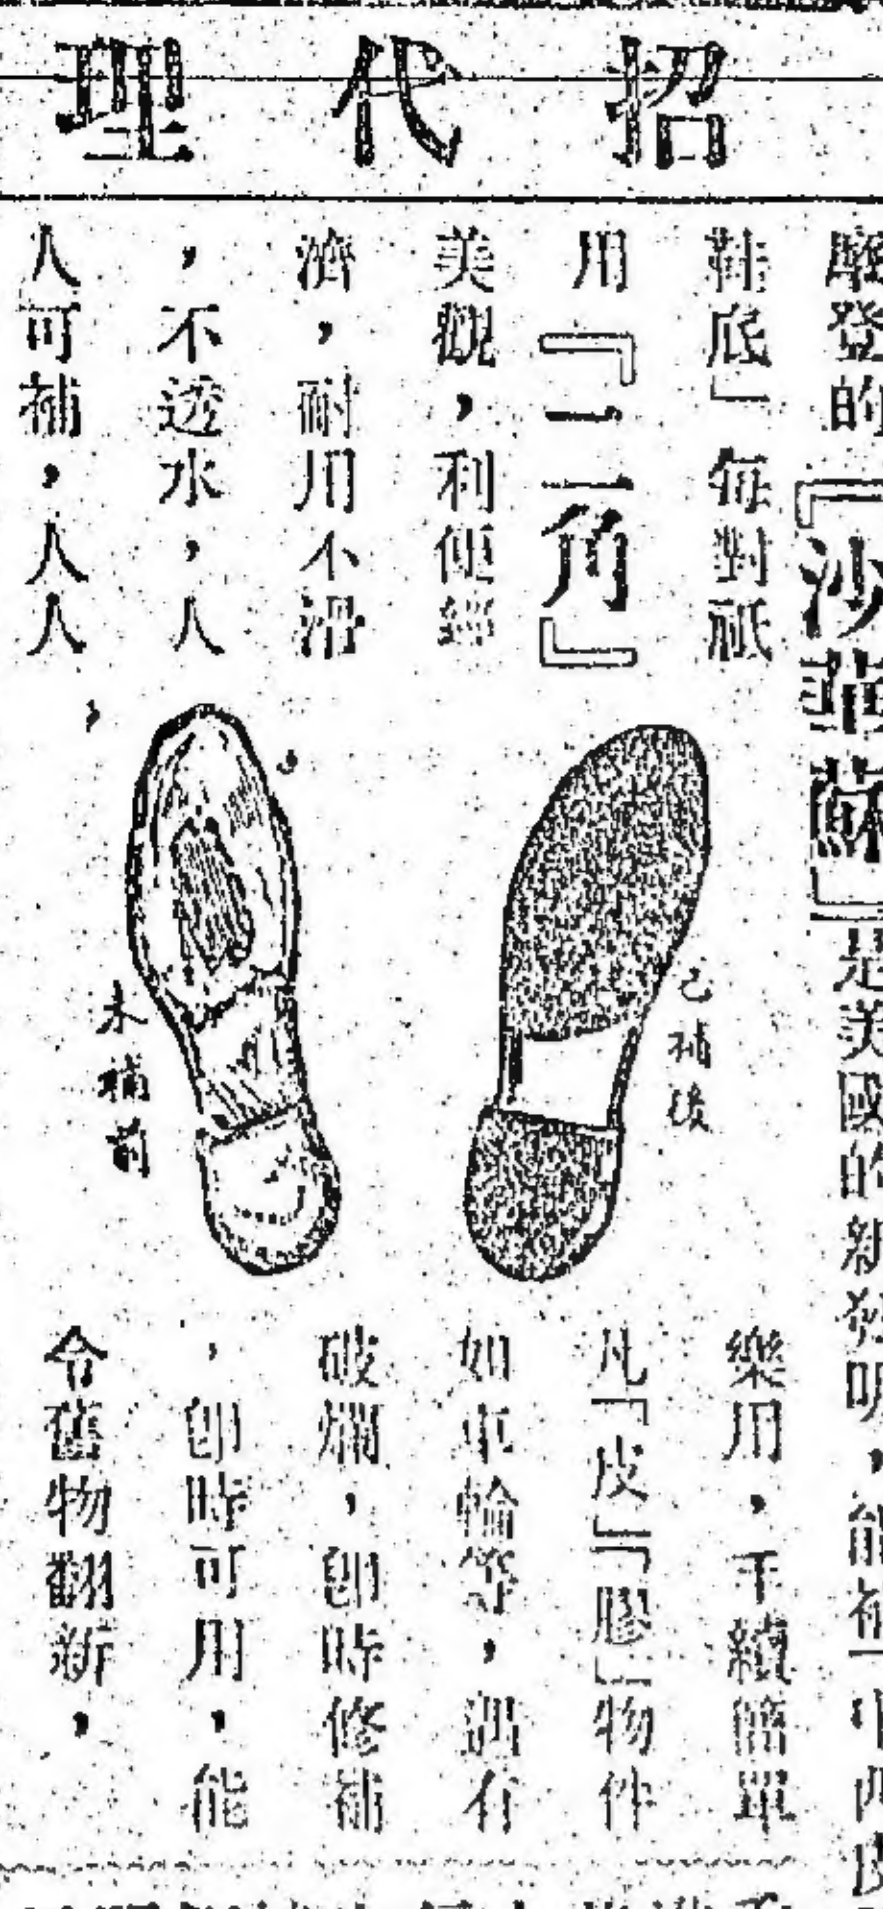 招代理
登的『沙華蘇』是美國的新發明，能補「中西皮
鞋底」每對祇
用『一二角』
美觀，利便經
濟，耐用不滑
，不透水，人
人可補，人人
樂用，手續簡單
凡「皮」「膠」物件
如車輪等，遇有
破爛，卽時修補
，卽時可用，能
令舊物翻新，
已補後
未補前